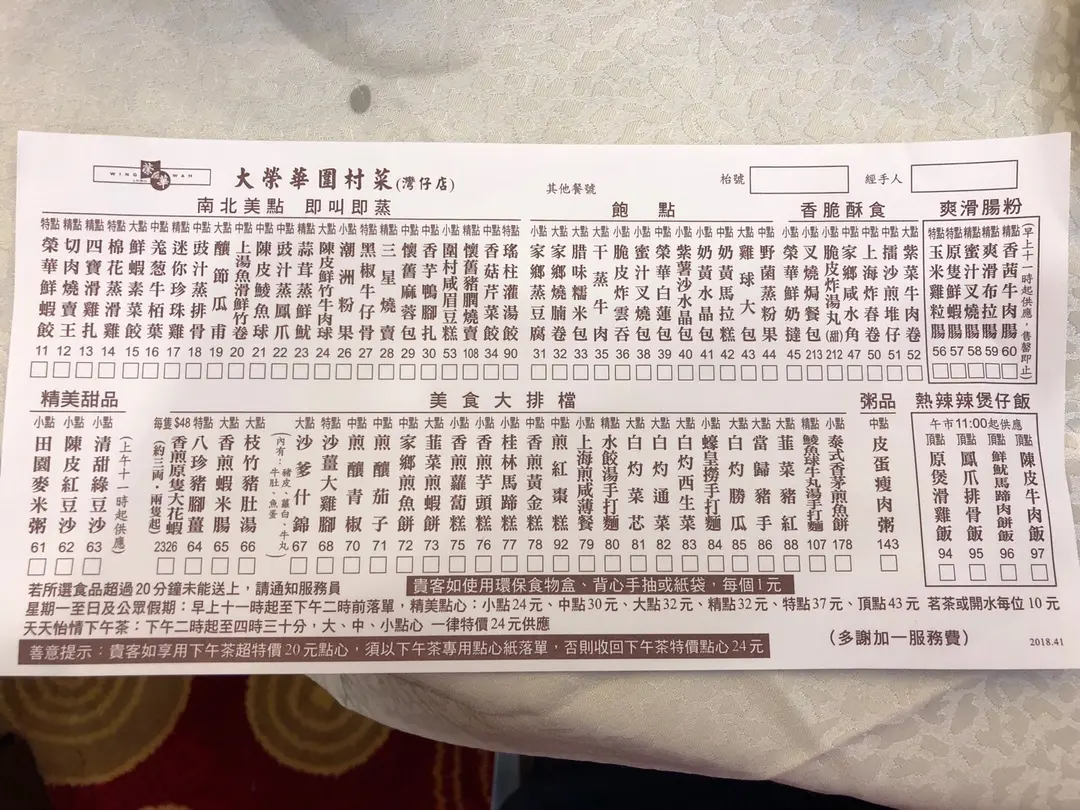 WING WAH
榮華
大榮華圍村菜(灣仔店)
其他餐號
枱號
經手人
南北美點 即叫即蒸
特點 榮華鮮蝦餃 11
精點 切肉燒賣王 12
精點 四寶滑雞扎 13
特點 棉花蒸滑雞 14
大點 鮮蝦素菜餃 15
中點 羗葱牛栢葉 16
精點 迷你珍珠雞 17
中點 豉汁蒸排骨 18
大點 釀節瓜甫 19
中點 上湯魚滑鮮竹卷 20
中點 陳皮鯪魚球 21
中點 豉汁蒸鳳爪 22
精點 蒜茸蒸鮮魷 23
中點 陳皮鮮竹牛肉球 24
小點 潮洲粉果 26
特點 黑椒牛仔骨 27
精點 三星燒賣 28
中點 懷舊麻蓉包 29
中點 香芋鴨腳扎 30
小點 圍村咸眉豆糕 53
特點 懷舊豬膶燒賣 108
中點 香菇芹菜餃 34
特點 瑤柱灌湯餃 90
飽點
小點 家鄉蒸豆腐 31
小點 家鄉蒸腩卷 32
中點 腊味糯米包 33
中點 干蒸牛肉 35
小點 脆皮炸雲吞 36
小點 蜜汁叉燒包 38
中點 榮華白蓮包 39
小點 紫薯沙水晶包 40
小點 奶黃水晶包 41
小點 奶黃馬拉糕 42
大點 雞球大包 43
中點 野菌蒸粉果 44
香脆酥食
小點 榮華鮮奶撻 45
小點 叉燒焗餐包 213
小點 脆皮炸湯丸(甜) 212
中點 家鄉咸水角 47
小點 上海炸春卷 50
中點 擂沙煎堆仔 51
大點 紫菜牛肉卷 52
爽滑腸粉
特點 玉米雞粒腸 56
特點 原隻鮮蝦腸 57
精點 蜜汁叉燒腸 58
精點 爽滑布拉腸 59
精點 香茜牛肉腸 60
(早上十一時起供應，售罄即止)
精美甜品
小點 田園麥米粥 61
小點 陳皮紅豆沙 62
小點 清甜綠豆沙 63
(上午十一時起供應)
美食大排檔
每隻$48 香煎原隻大花蝦 (約三両，兩隻起) 2326
特點 八珍豬腳薑 64
大點 香煎蝦米腸 65
大點 枝竹豬肚湯 66
大點 沙爹什錦 (內有：豬皮、蘿白、牛丸、牛肚、魚蛋) 67
特點 沙薑大雞腳 68
中點 煎釀青椒 70
中點 煎釀茄子 71
中點 家鄉煎魚餅 72
大點 韮菜煎蝦餅 73
小點 香煎蘿蔔糕 75
小點 香煎芋頭糕 76
小點 桂林馬蹄糕 77
中點 香煎黃金糕 78
中點 煎紅棗糕 92
小點 上海煎咸薄餐 79
精點 水餃湯手打麵 80
大點 白灼菜芯 81
大點 白灼通菜 82
大點 白灼西生菜 83
小點 蠔皇撈手打麵 84
大點 白灼勝瓜 85
大點 當歸豬手 86
大點 韮菜豬紅 88
精點 鯪魚球牛丸湯手打麵 107
小點 泰式香茅煎魚餅 178
粥品
中點 皮蛋瘦肉粥 143
熱辣辣煲仔飯
午市11:00起供應
頂點 原煲滑雞飯 94
頂點 鳳爪排骨飯 95
頂點 鮮魷馬蹄肉餅飯 96
頂點 陳皮牛肉飯 97
若所選食品超過20分鐘未能送上，請通知服務員
貴客如使用環保食物盒、背心手抽或紙袋，每個1元
星期一至日及公眾假期：早上十一時起至下午二時前落單，精美點心：小點24元、中點30元、大點32元、精點32元、特點37元、頂點43元 茗茶或開水每位10元
天天怡情下午茶：下午二時起至四時三十分，大、中、小點心 一律特價24元供應
(多謝加一服務費)
2018.41
善意提示：貴客如享用下午茶超特價20元點心，須以下午茶專用點心紙落單，否則收回下午茶特價點心24元